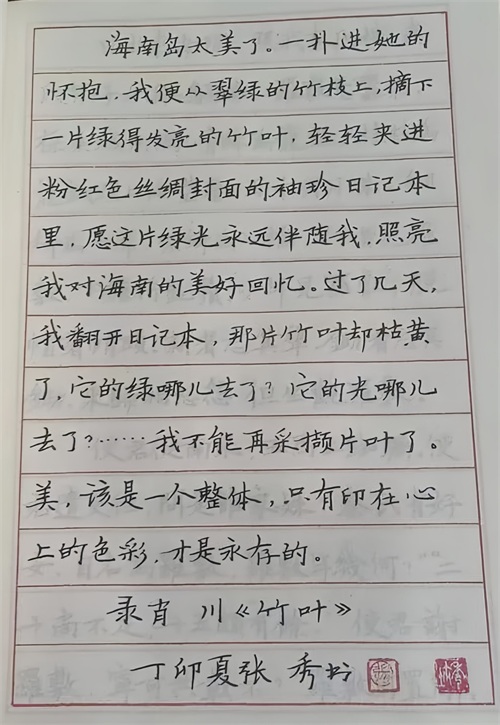 海南岛太美了。一扑进她的
怀抱，我便从翠绿的竹枝上，摘下
一片绿得发亮的竹叶，轻轻夹进
粉红色丝绸封面的袖珍日记本
里，愿这片绿光永远伴随我，照亮
我对海南的美好回忆。过了几天，
我翻开日记本，那片竹叶却枯黄
了，它的绿哪儿去了？它的光哪儿
去了？……我不能再采撷片叶了。
美，该是一个整体，只有印在心
上的色彩，才是永存的。
录肖 川《竹叶》
丁卯夏张 秀书